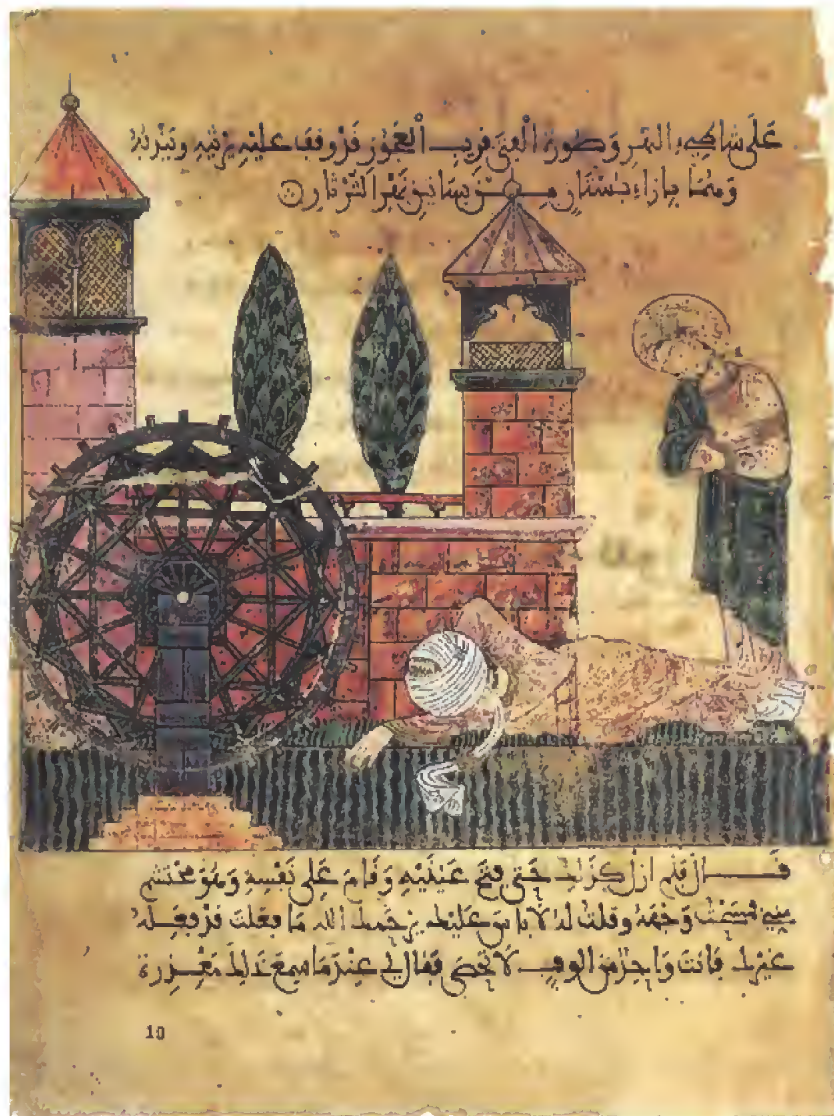 على شاطىء النهر وصورة الفتى قريب العجوز قد وقفا عليه يرثيه ويندبه
وهما بازاء بستان من بساتين نهر الثرثار
قــال فلم ازل كذلك حتى فتح عينيه وقام على نفسه وهو محتشم
مني فمسحت وجهه وقلت له لا باس عليك يرحمك الله ما فعلت قد فعله
غيرك فانت واحد من الوف لا تحصى فقال لي عندما سمع ذلك معذرة
10